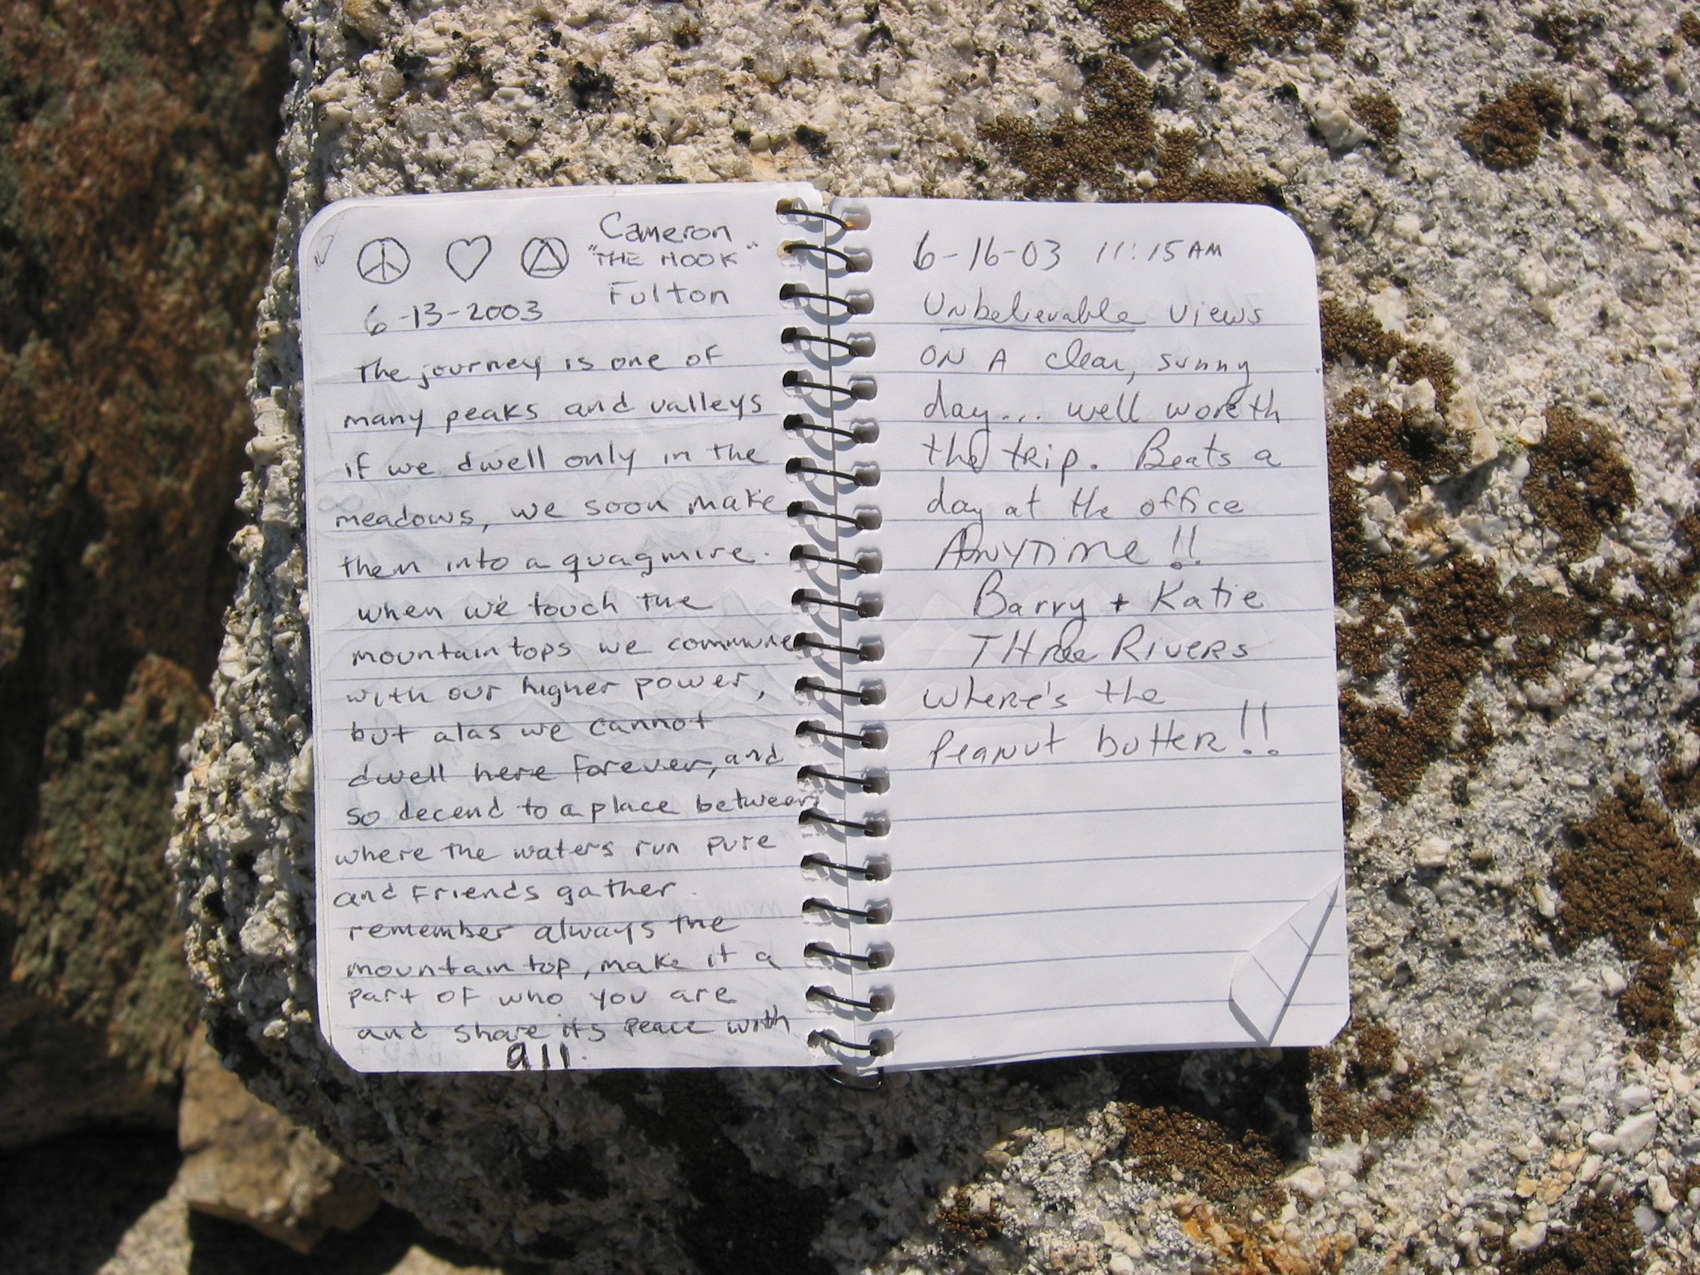 Cameron
"THE HOOK"
Fulton
6-13-2003
The journey is one of
many peaks and valleys
if we dwell only in the
meadows, we soon make
them into a quagmire.
when we touch the
mountain tops we commune
with our higher power,
but alas we cannot
dwell here forever, and
so decend to a place between
where the waters run pure
and Friends gather.
remember always the
mountain top, make it a
part of who you are
and share its Peace with
all.
6-16-03 11:15 AM
Unbelievable views
ON A clear, sunny
day... well worth
the trip. Beats a
day at the office
ANYTIME!!
Barry + Katie
THREE RIVERS
where's the
Peanut butter!!